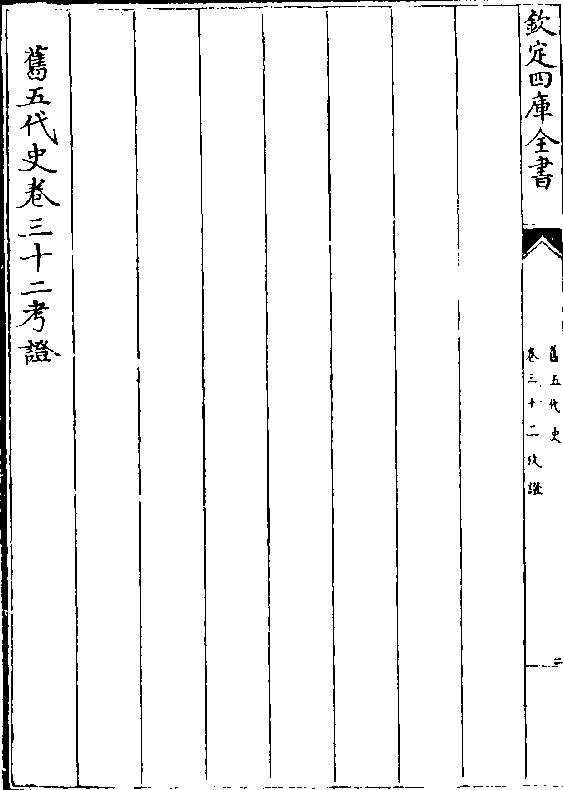 欽定四庫全書
舊五代史
卷三十二攷證
二
舊五代史卷三十二考證